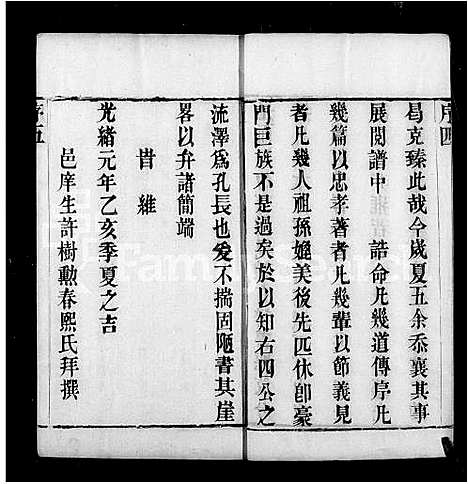 序四
曷克臻此哉今歲夏五余忝襄其事
展閱譜中 誥命凡幾道傳序凡
幾篇以忠孝著者凡幾輩以節義見
者凡幾人祖孫媲美後先匹休卽豪
門巨族不是過矣於以知右四公之
流澤爲孔長也爰不揣固陋書其崖
畧以弁諸簡端
旹維
光緒元年乙亥季夏之吉
邑庠生許樹勲春熙氏拜撰
序五
FamilySearch